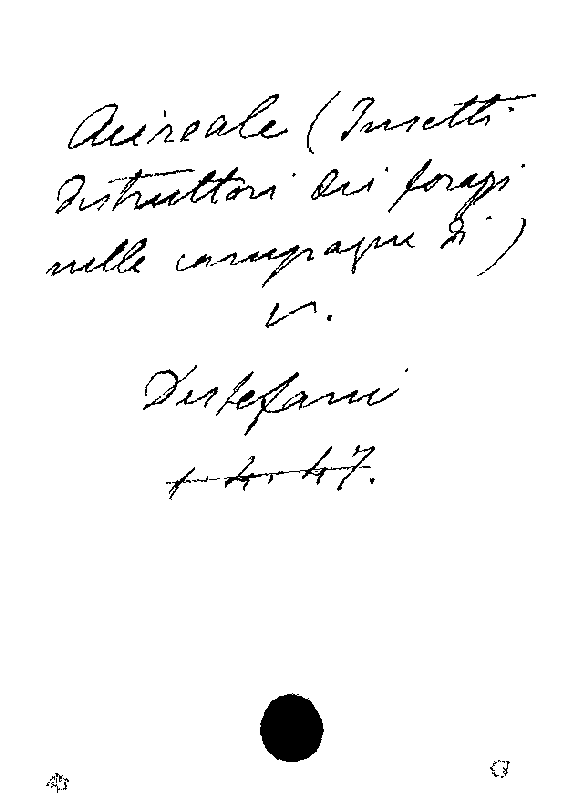 Acireale (Insetti
distruttori dei foraggi
nelle campagne di)
v.
Destefani
1. 4. 47.